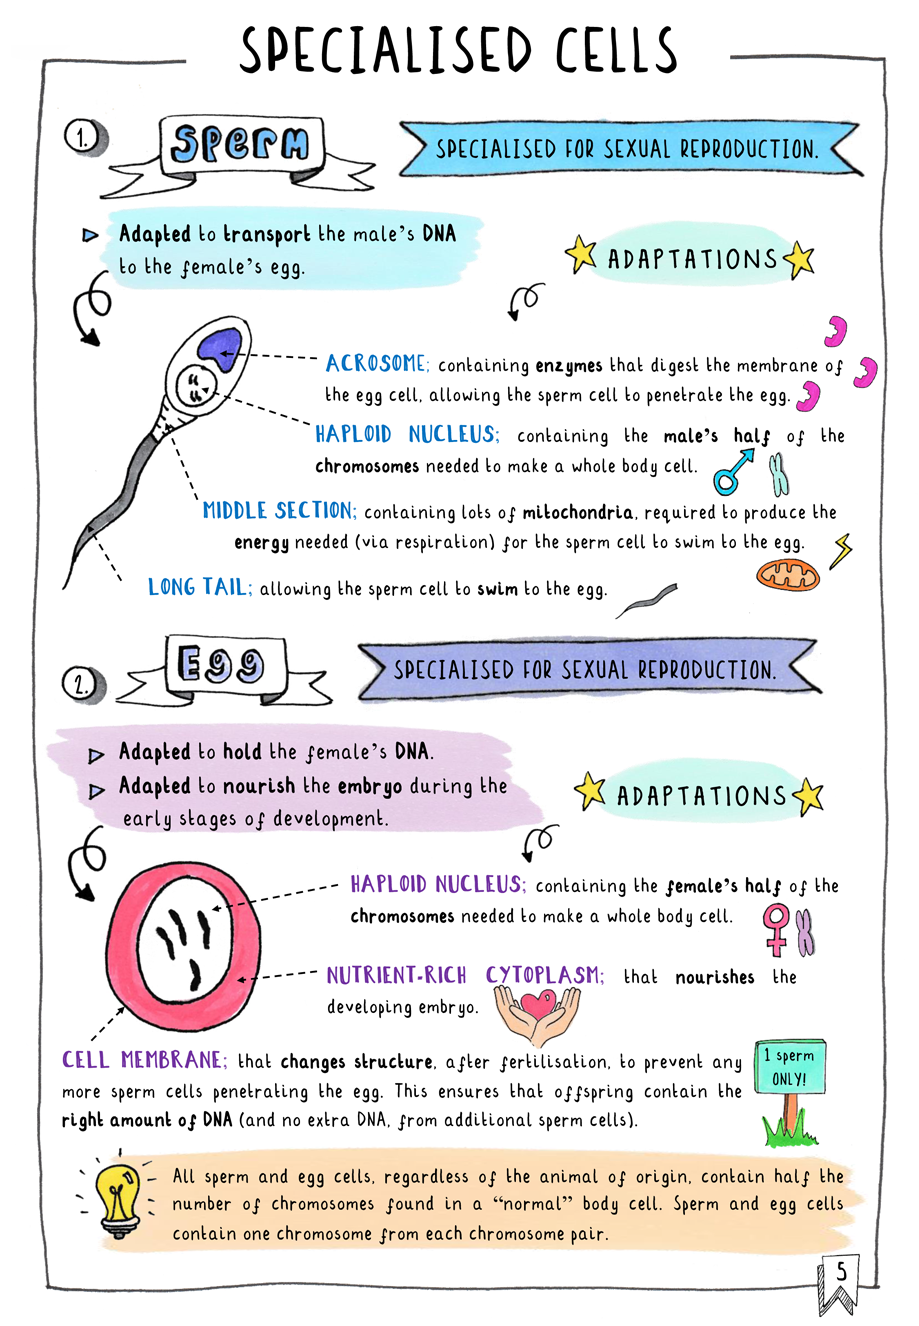 SPECIALISED CELLS
1.
Sperm
SPECIALISED FOR SEXUAL REPRODUCTION.
Adapted to transport the male's DNA
to the female's egg.
ADAPTATIONS
ACROSOME; containing enzymes that digest the membrane of
the egg cell, allowing the sperm cell to penetrate the egg.
HAPLOID NUCLEUS; containing the male's half of the
chromosomes needed to make a whole body cell.
MIDDLE SECTION; containing lots of mitochondria, required to produce the
energy needed (via respiration) for the sperm cell to swim to the egg.
LONG TAIL; allowing the sperm cell to swim to the egg.
2.
Egg
SPECIALISED FOR SEXUAL REPRODUCTION.
Adapted to hold the female's DNA.
Adapted to nourish the embryo during the
early stages of development.
ADAPTATIONS
HAPLOID NUCLEUS; containing the female's half of the
chromosomes needed to make a whole body cell.
NUTRIENT-RICH CYTOPLASM; that nourishes the
developing embryo.
CELL MEMBRANE; that changes structure, after fertilisation, to prevent any
more sperm cells penetrating the egg. This ensures that offspring contain the
right amount of DNA (and no extra DNA, from additional sperm cells).
1 sperm
ONLY!
All sperm and egg cells, regardless of the animal of origin, contain half the
number of chromosomes found in a "normal" body cell. Sperm and egg cells
contain one chromosome from each chromosome pair.
5